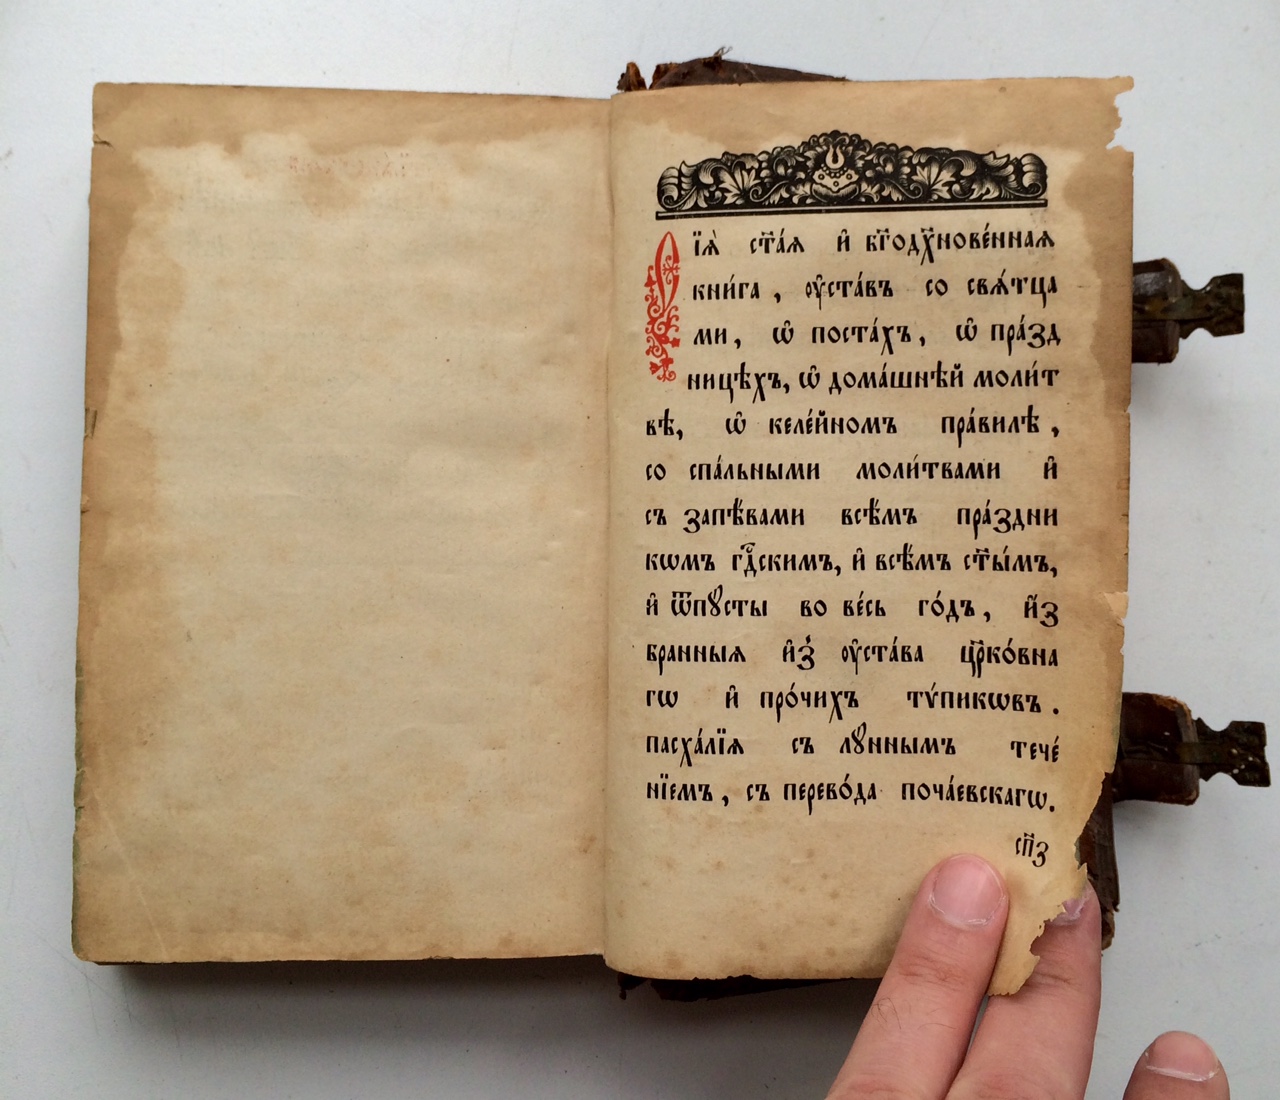 Сїѧ҄ ст҃а́ѧ и҆ бг҃одх҃нове́ннаѧ
кни́га , ѹ҆ста́въ со свѧ́тца
ми, ѡ҆ поста́хъ, ѡ҆ пра́зд
ницѣхъ, ѡ҆ дома́шнѣй моли́т
вѣ, ѡ҆ келе́йномъ пра́вилѣ ,
со спа́льными моли́твами и҆
съ запѣ́вами всѣ́мъ пра́здни
кѡмъ гдⷭ҇скимъ, и҆ всѣ́мъ ст҃ы́мъ,
и҆ ѿпꙋсты во ве́сь го́дъ, и҆з
бранныѧ и҆з̾ ѹ҆ста́ва цр҃ко́вна
гѡ и҆ про́чихъ тѷ́пикѡвъ .
пасха́лїѧ съ лꙋннымъ тече́
нїемъ, съ перево́да поча́евскагѡ.
сп҃з